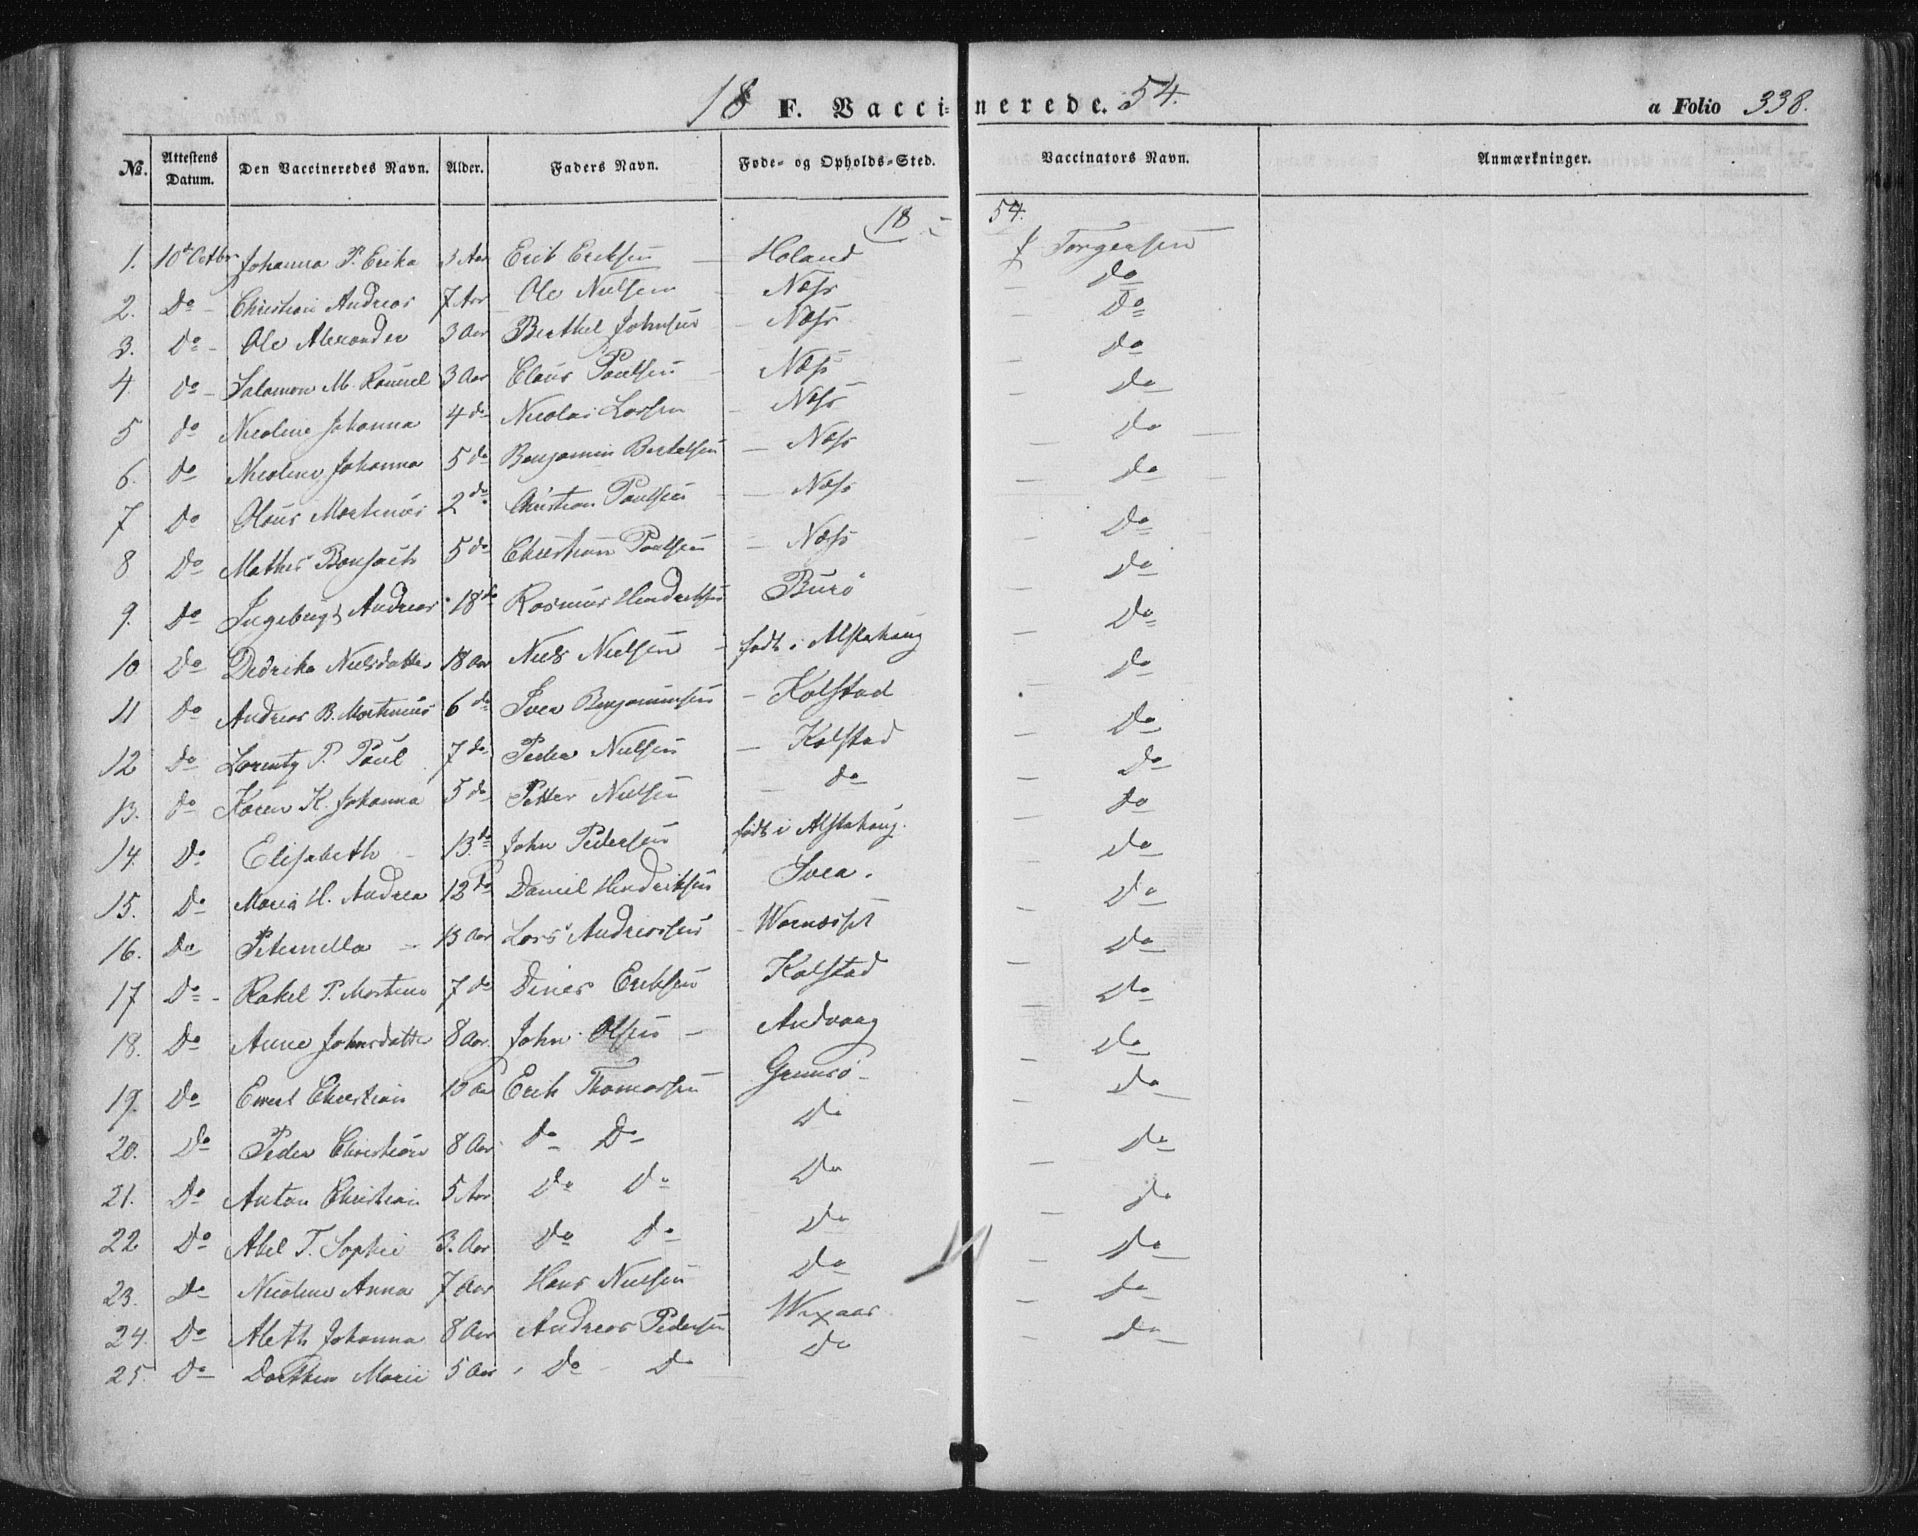 18 F. Vaccinerede. 54. a Folio 338.
No. Attestens Datum. Den Vaccineredes Navn. Alder. Faders Navn. Føde- og Opholds-Sted. Vaccinators Navn. Anmærkninger.
18 - 54.
1. 10de Octbr Johanna P. Erika 3 Aar Erik Eriksen Holand J Torgersen
2. Do Christian Andreas 7 Aar Ole Nielsen Næss Do
3. Do Ole Alexander 3 Aar Berthel Johnsen Næss Do
4. do Salamon M. 3 Aar Claus Paulsen Næss do
5 do Nicoline Johanna 4 do Nicolai Larsen Næss do
6. do Nicoline Johanna 5 do Benjamin Bertelsen Næss do
7 Do Olaus Martinus 2 do Christian Paulsen Næss do
8 Do Mathis 5 do Christian Paulsen Næss Do
9. Do Andreas 18 do Rasmus Hendriksen Burø do
10 Do Dedrika Nielsdatter 18 Aar Niels Nielsen født i Alstahaug Do
11 Do Andreas B. Martinius 6 do Iver Benjaminsen Kolstad do
12 Do Lorentz P. Paul 7 do Peder Nielsen Kolstad Do
13. do Karen K. Johanna 5 do Petter Nielsen do Do
14. Do Elisabeth 13 do John Pedersen født i Alstahaug. do
15. Do Maria H. Andrea 12 do Daniel Hendriksen do
16. Do Peternella 13 Aar Lars Andreassen do
17 Do Rakel P. Martina 7 do Dines Eriksen Kolstad do
18. Do Anne Johnsdatter 8 Aar. John Olsen Andvaag do
19. Do Christian 10 Aar Erik Thomassen do
20. Do Peder Christian 8 Aar do Do Do do
21. Do Anton Christian 5 Aar Do Do Do do
22 Do Abel T. Sophie 3. Aar Do Do Do do
23. Do Nicoline Anna 7 Aar Hans Nielsen Do do
24. Do Aleth Johanna 8 Aar Andreas Pedersen do
25. Do Dorthea Marie 5 Aar Do Do Do